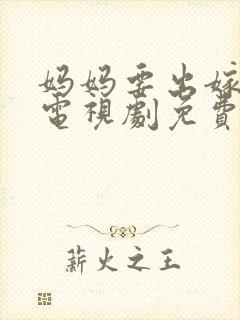 妈妈要出嫁
電視劇免費
薪火之王